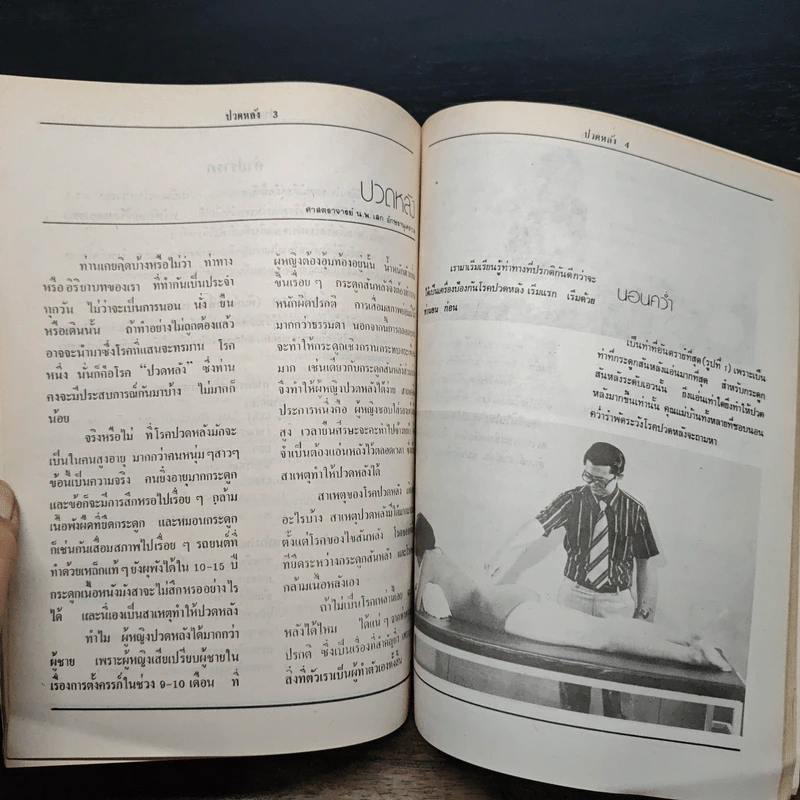 ปวดหลัง 3
ปวดหลัง
ศาสตราจารย์ น.พ. เสก
ท่านเคยคิดบ้างหรือไม่ว่า ท่าทาง
หรืออิริยาบทของเรา ที่ทำกันเป็นประจำ
ทุกวัน ไม่ว่าจะเป็นการนอน นั่ง ยืน
หรือเดินนั้น ถ้าทำอย่างไม่ถูกต้องแล้ว
อาจจะนำมาซึ่งโรคที่แสนจะทรมาน โรค
หนึ่ง นั่นก็คือโรค “ปวดหลัง” ซึ่งท่าน
คงจะมีประสบการณ์กันมาบ้าง ไม่มากก็
น้อย
จริงหรือไม่ ที่โรคปวดหลังมักจะ
เป็นในคนสูงอายุ มากกว่าคนหนุ่มๆสาวๆ
ข้อนี้เป็นความจริง คนยิ่งอายุมากกระดูก
และข้อก็จะมีการสึกหรอไปเรื่อยๆ กล้าม
เนื้อพังผืดที่ยึดกระดูก และหมอนกระดูก
ก็เช่นกันเสื่อมสภาพไปเรื่อยๆ รถยนต์ที่
ทำด้วยเหล็กแท้ๆยังผุพังได้ใน 10-15 ปี
กระดูกเนื้อหนังมังสาจะไม่สึกหรออย่างไร
ได้ และนี่เองเป็นสาเหตุทำให้ปวดหลัง
ทำไม ผู้หญิงปวดหลังได้มากกว่า
ผู้ชาย เพราะผู้หญิงเสียเปรียบผู้ชายใน
เรื่องการตั้งครรภ์ในช่วง 9-10 เดือน ที่
ผู้หญิงต้องอุ้มท้องอยู่นั้น น้ำหนักตัว
ขึ้นเรื่อยๆ กระดูกสันหลังจึงต้อง
หนักผิดปรกติ การเสื่อมสภาพ
มากกว่าธรรมดา นอกจากนี้การคลอด
จะทำให้กระดูกเชิงกรานกระทบ
มาก เช่นเดียวกับกระดูกสันหลัง
จึงทำให้ผู้หญิงปวดหลังได้ง่าย
ประการหนึ่งคือ ผู้หญิงชอบใส่รอง
สูง เวลายืนศีรษะจะคะมำไปข้าง
จำเป็นต้องแอ่นหลังไว้ตลอดเวลา
สาเหตุทำให้ปวดหลังได้
สาเหตุของโรคปวดหลัง
อะไรบ้าง สาเหตุปวดหลังมีได้
ตั้งแต่โรคของไขสันหลัง
ที่ยึดระหว่างกระดูกสันหลัง และ
กล้ามเนื้อหลังเอง
ถ้าไม่เป็นโรคเหล่านี้เลย
หลังได้ไหม ได้แน่ๆ
ปรกติ ซึ่งเป็นเรื่องที่สำคัญ
สิ่งที่ตัวเราเป็นผู้ทำตัวเองทั้งสิ้น
ปวดหลัง 4
เรามาเริ่มเรียนรู้ท่าทางที่ปรกติกันดีกว่าจะ
ได้เป็นเครื่องป้องกันโรคปวดหลัง เริ่มแรก เริ่มด้วย
ท่านอน ก่อน
นอนคว่ำ
เป็นท่าที่อันตรายที่สุด (รูปที่ 1) เพราะเป็น
ท่าที่กระดูกสันหลังแอ่นมากที่สุด สำหรับกระดูก
สันหลังระดับเอวนั้น ยิ่งแอ่นเท่าใดยิ่งทำให้ปวด
หลังมากขึ้นเท่านั้น คุณแม่บ้านทั้งหลายที่ชอบนอน
คว่ำรำพัดระวังโรคปวดหลังจะถามหา